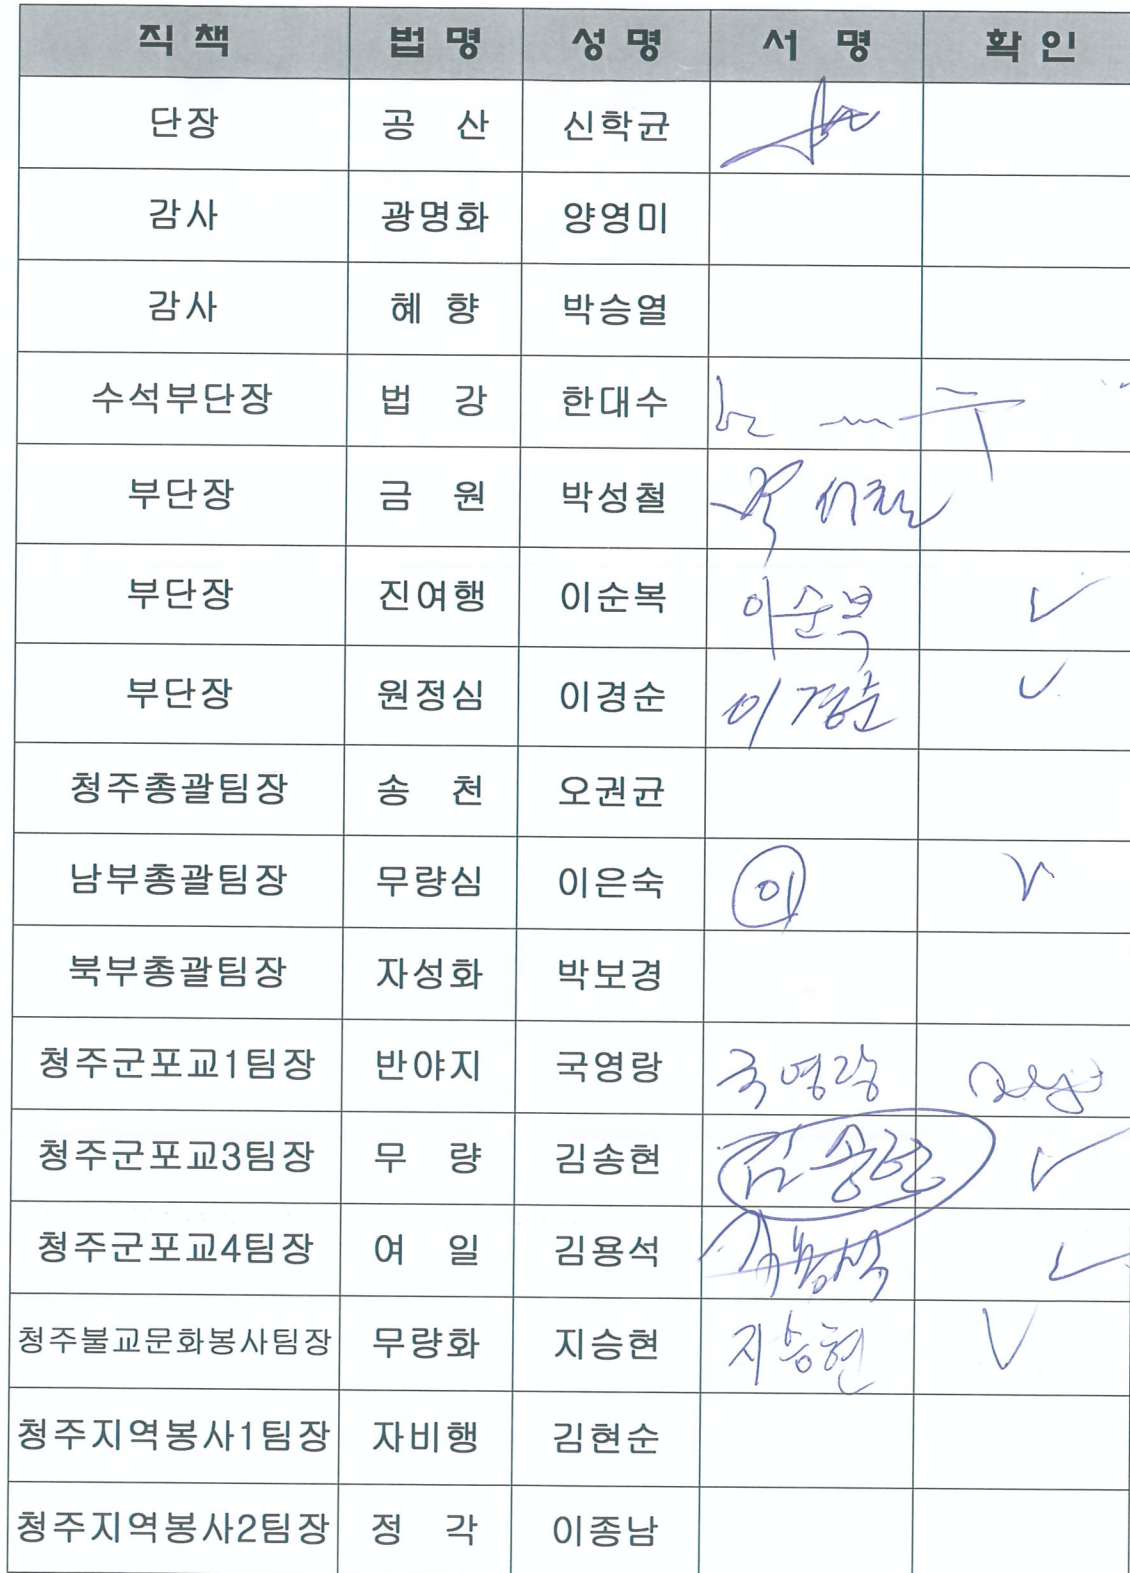 직 책 법 명 성 명 서 명 확 인
단장 공 산 신학균
감사 광명화 양영미
감사 혜 향 박승열
수석부단장 법 강 한대수
부단장 금 원 박성철
부단장 진여행 이순복 이순복
부단장 원정심 이경순 이경순
청주총괄팀장 송 천 오권균
남부총괄팀장 무량심 이은숙 이
북부총괄팀장 자성화 박보경
청주군포교1팀장 반야지 국영랑 국영랑
청주군포교3팀장 무 량 김송현 김송현
청주군포교4팀장 여 일 김용석 김용석
청주불교문화봉사팀장 무량화 지승현 지승현
청주지역봉사1팀장 자비행 김현순
청주지역봉사2팀장 정 각 이종남